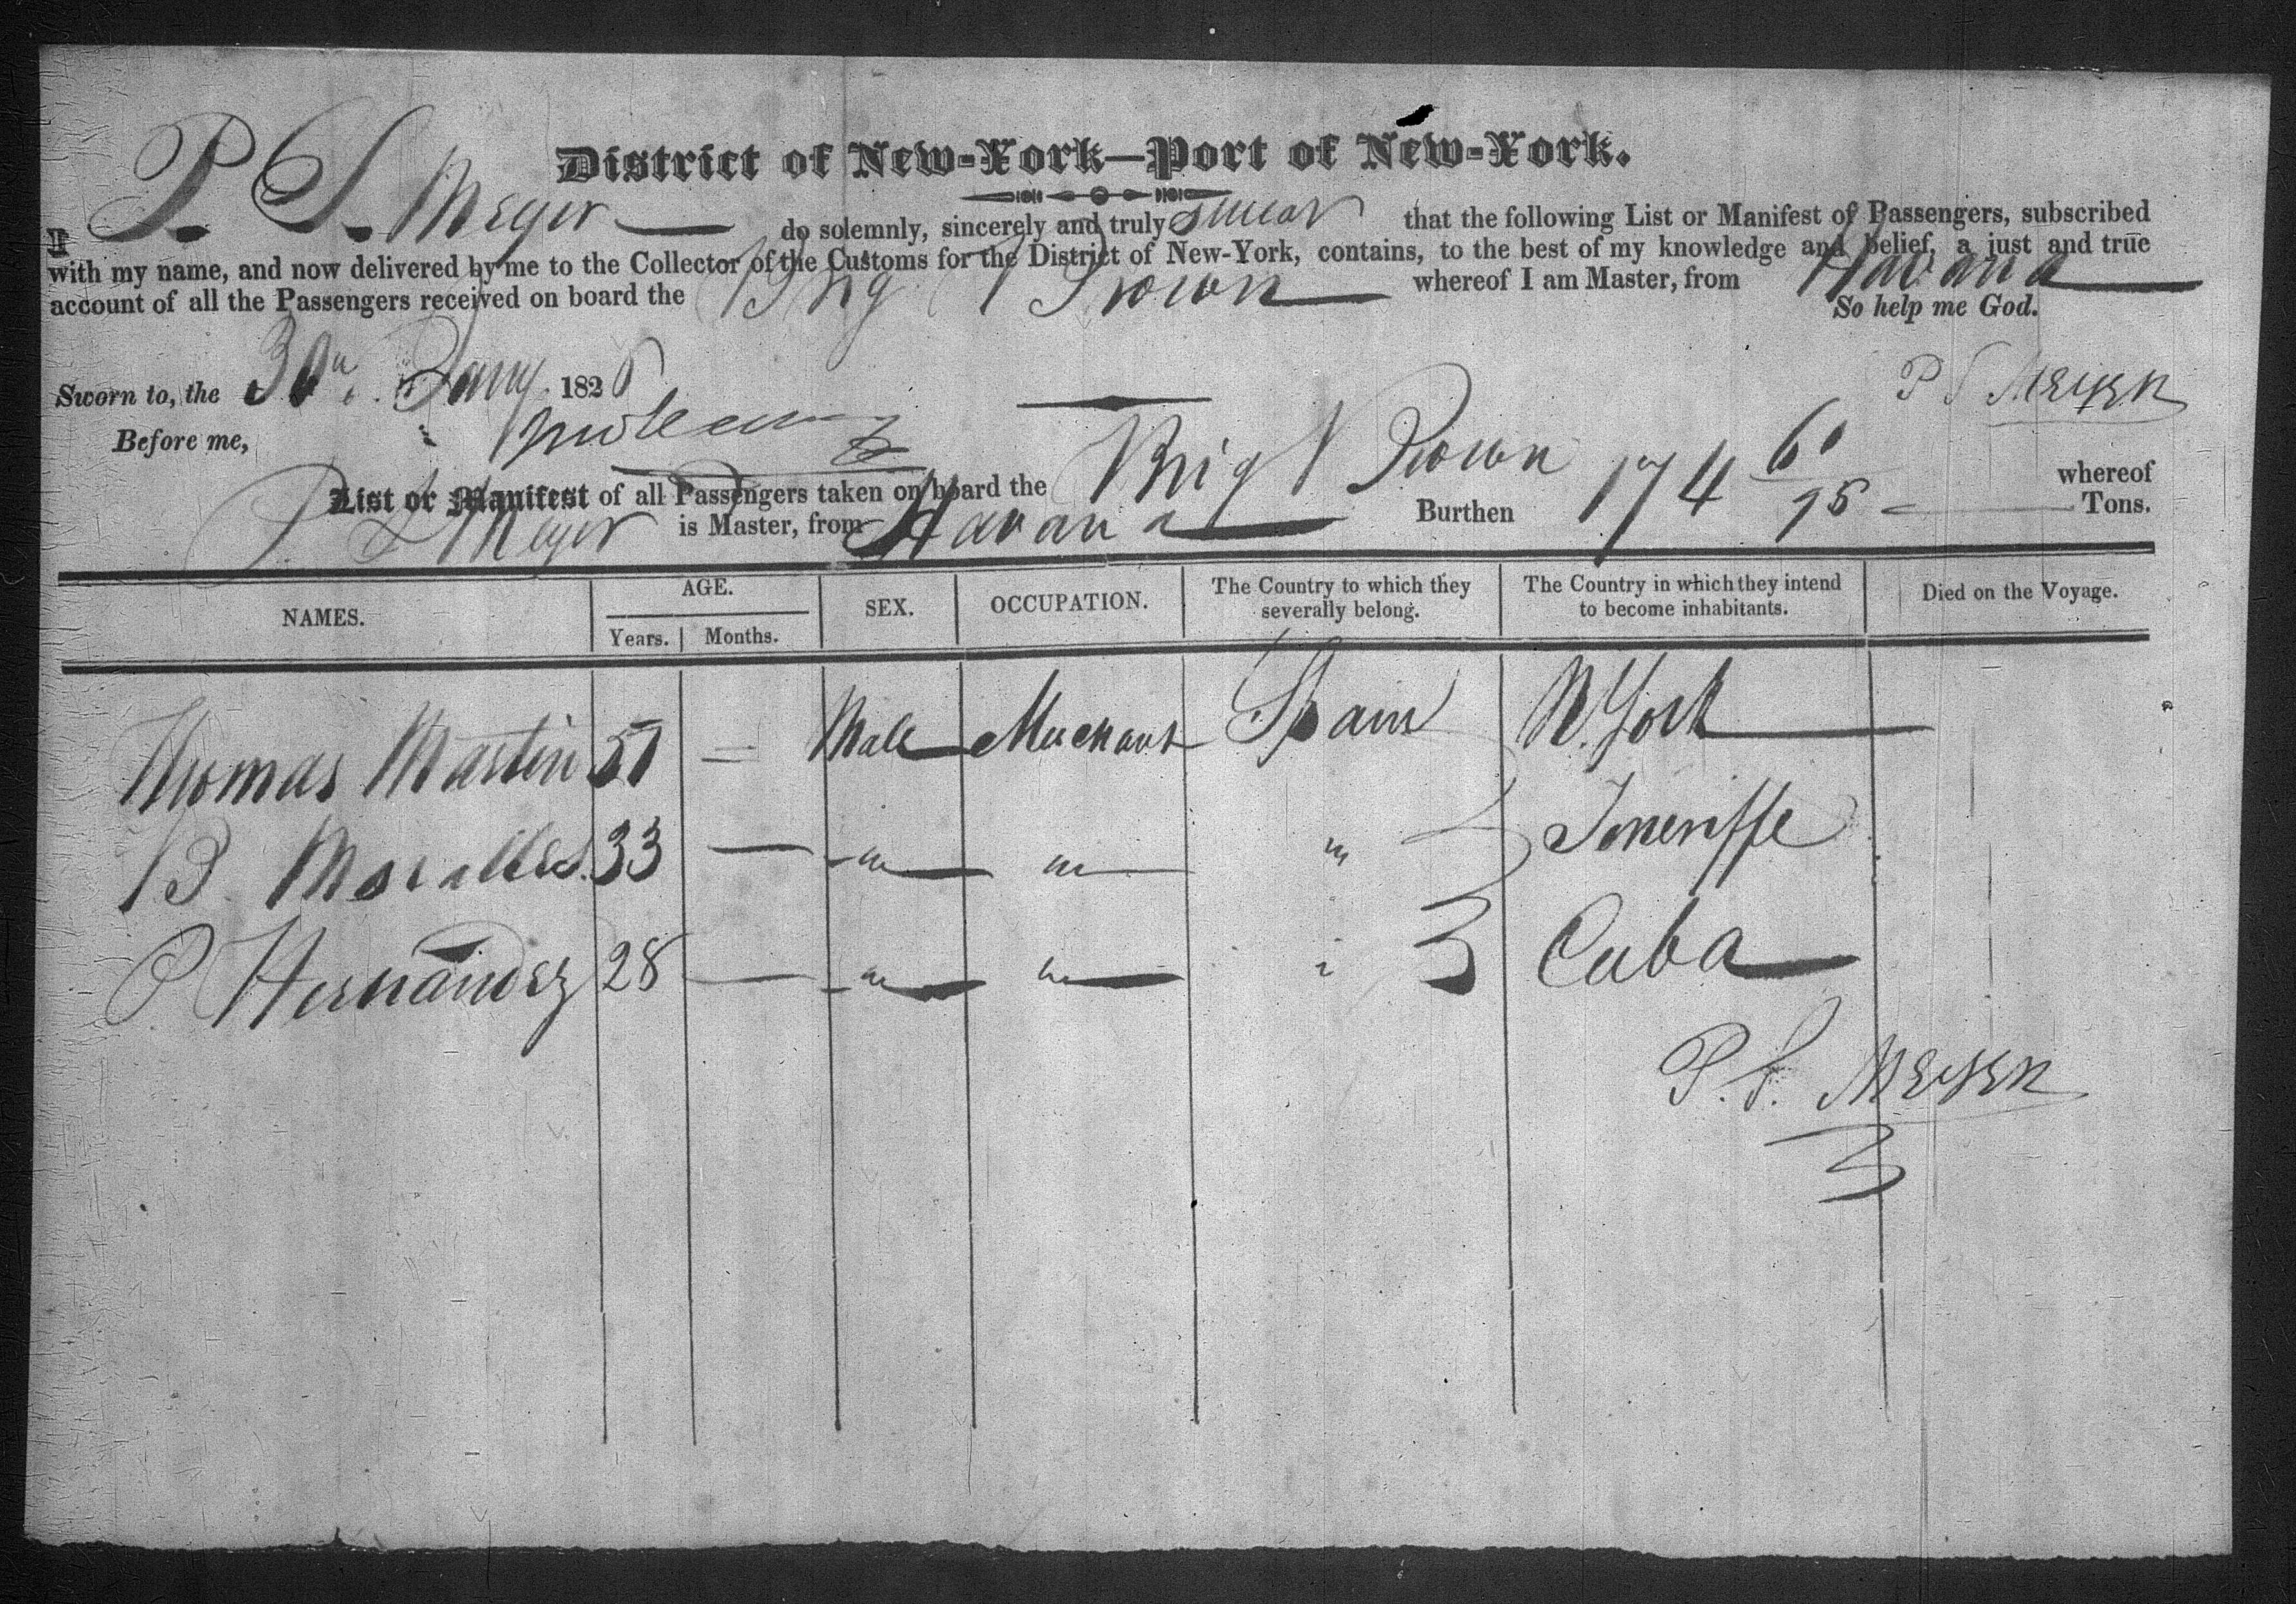 District of New-York—Port of New-York.
I P. S. Meyer do solemnly, sincerely and truly swear that the following List or Manifest of Passengers, subscribed
with my name, and now delivered by me to the Collector of the Customs for the District of New-York, contains, to the best of my knowledge and belief, a just and true
account of all the Passengers received on board the Brig Brown whereof I am Master, from Havana
So help me God.
Sworn to, the 30th Jany. 182
P S MEYER
Before me,
List or Manifest of all Passengers taken on board the Brig Brown Burthen 174 60/95 whereof
P. S. Meyer is Master, from Havana Tons.
NAMES. AGE. Years. Months. SEX. OCCUPATION. The Country to which they severally belong. The Country in which they intend to become inhabitants. Died on the Voyage.
Thomas Martin 51 — Male Merchant Spain N. York
B. Moralles. 33 — " " " Teneriffe
P. Hernandez 28 — " " " Cuba
P. S. MEYER